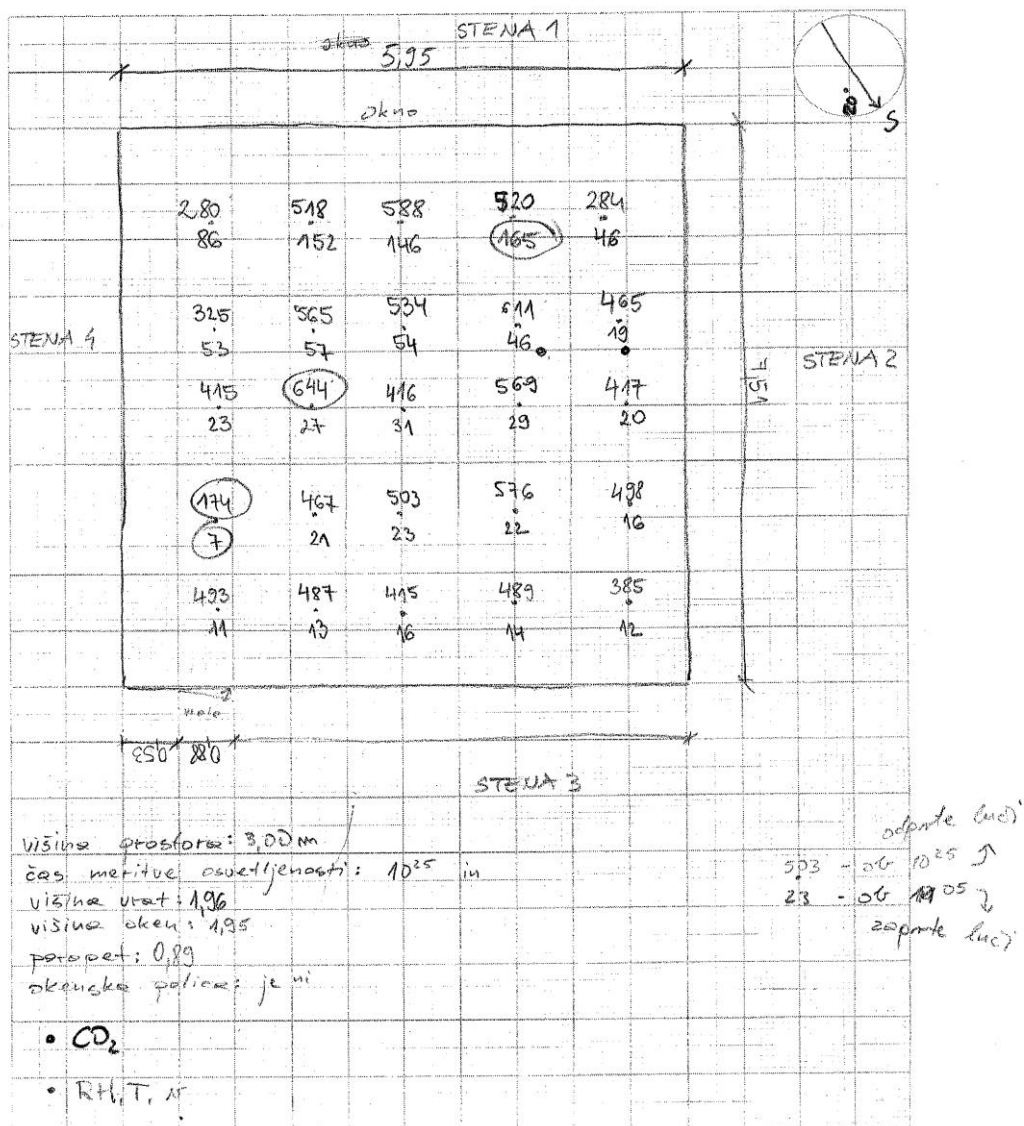 STENA 1
okno
5,95
okno
20
S
280 518 588 520 284
86 152 146 165 46
325 565 534 611 465
53 57 54 46 19
STENA 4
STENA 2
415 644 416 569 417
23 27 31 29 20
7,51
174 467 503 576 498
7 21 23 22 16
493 487 415 489 385
11 13 16 14 12
0,53 0,88
STENA 3
višina prostora: 3,00 m
čas meritve osvetljenosti: 10²⁵ in
višina vrat: 1,96
višina oken: 1,95
parapet: 0,89
okenska polica: je ni
odprte luči
503 - ob 10²⁵
23 - ob 11⁰⁵
zaprte luči
• CO₂
• RH, T, v